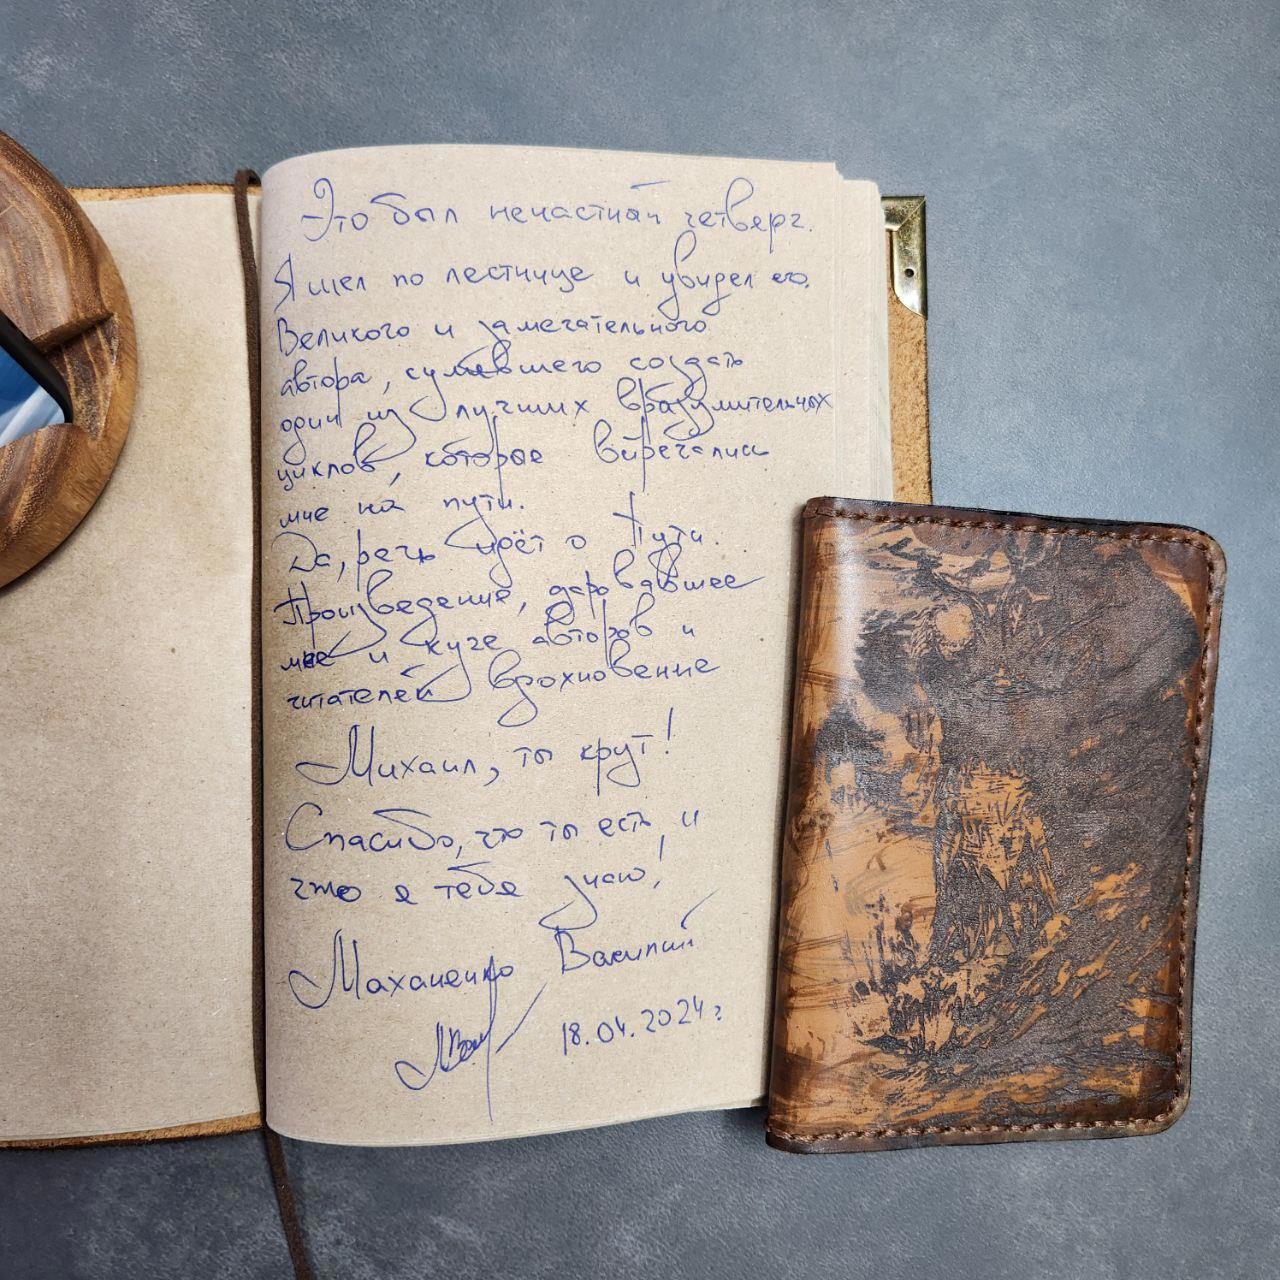 Это был ненастный четверг.
Я шел по лестнице и увидел его.
Великого и замечательного
автора, сумевшего создать
один из лучших вразумительных
циклов, которые встречались
мне на пути.
Да, речь идёт о Пути.
Произведение, даровавшее
мне и куче авторов и
читателей вдохновение
Михаил, ты крут!
Спасибо, что ты есть, и
что я тебя знаю!
Маханенко Василий
18.04.2024 г.